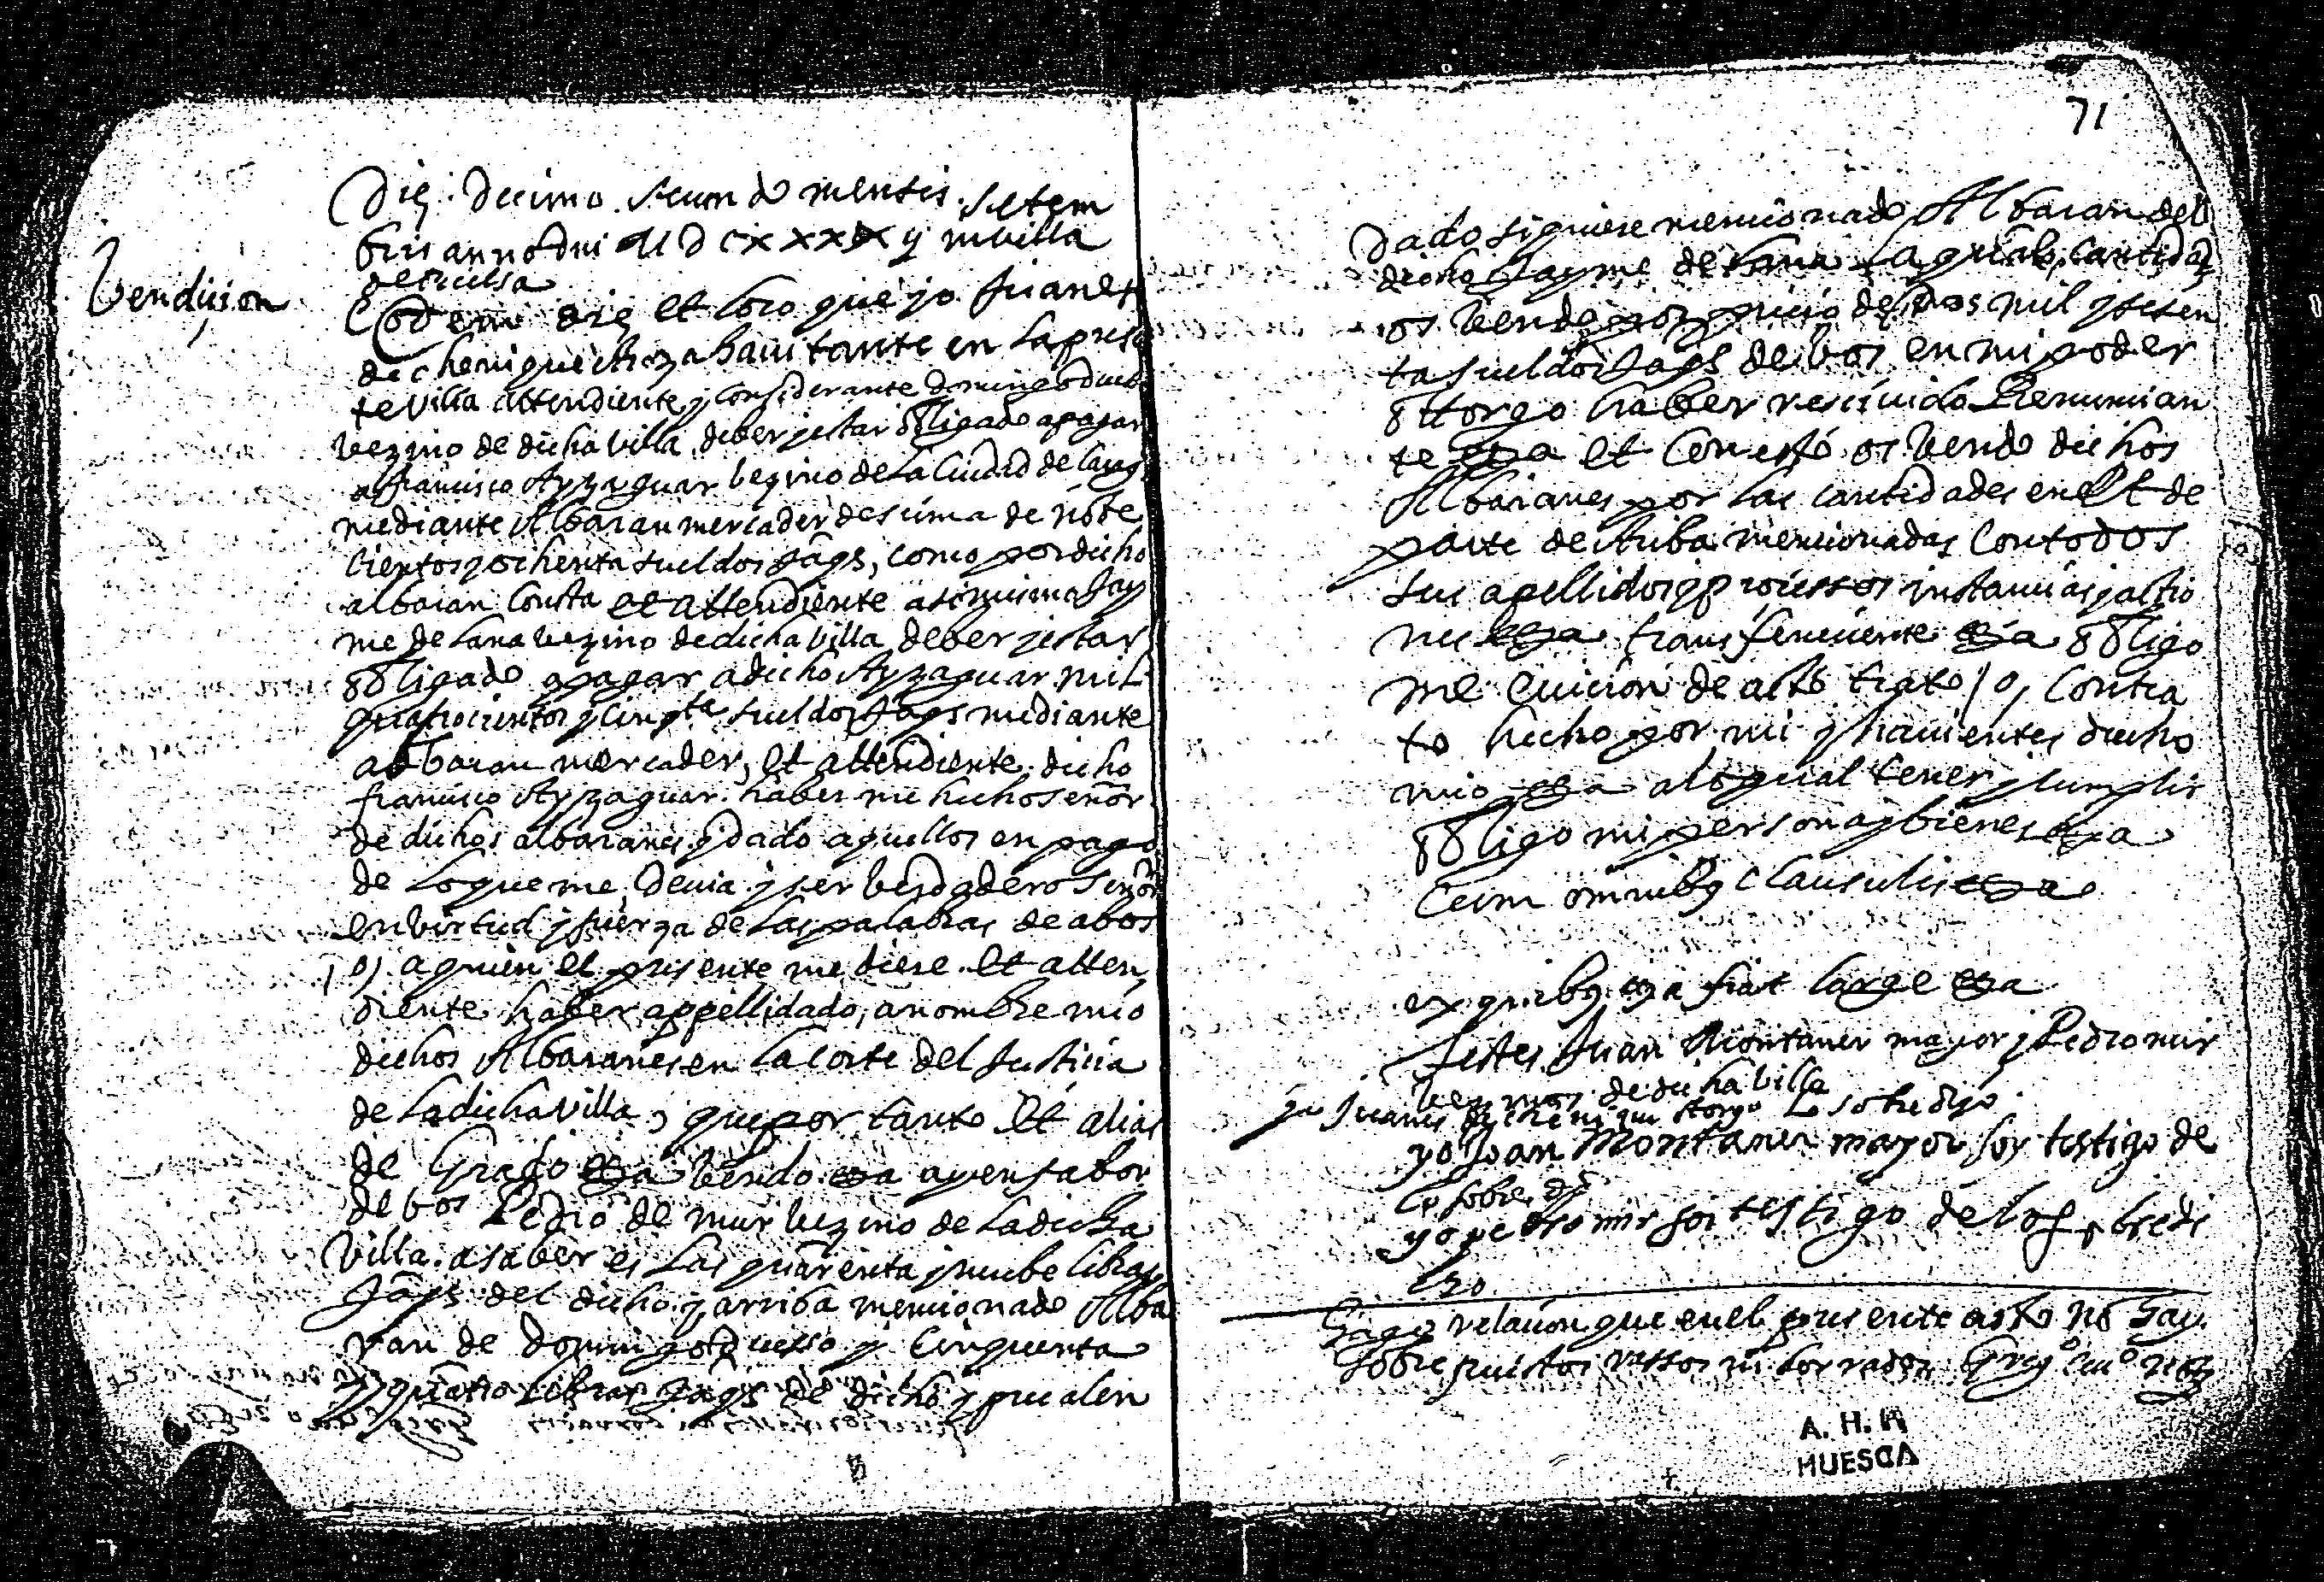 Vendicion
Die Decimo secundo mensis setem
bris anno Dni MDCXXXX y en villa
Eodem die et loco que yo Juanes
de Chenique habitante en la presen
te villa attendiente y considerante Domingo
vezino de dicha villa deber y estar obligado a pagar
a francisco Ayzaguar vezino de la Ciudad de
mediante Albaran mercader de suma de nobe
cientos y ochenta sueldos Jags, como por dicho
albaran consta et attendiente asimismo Jay
me de Lana vezino de dicha villa deber y estar
obligado a pagar a dicho Ayzaguar mil
quatrocientos y cinqta sueldos Jags mediante
albaran mercader, et attendiente dicho
francisco Ayzaguar haber me hecho señor
de dichos albaranes y dado aquellos en pago
de lo que me devia y ser verdadero señor
en virtud y fuerza de las palabras de a bos
o, a quien el presente me diere et atten
diente haber appellidado, a nombre mio
dichos Albaranes en la corte del Justicia
de la dicha villa, que por tanto et alias
de Grado eza vendo eza a
de bos Pedro de Mur vezino de la dicha
villa. a saber es las quarenta y nuebe libras
Jags del dicho y arriba mencionado Alba
ran de Domingo y cinquenta
y quatro libras Jags de dicho y precalen
71
dado siquiere mencionado Albaran del
dicho Jayme de Lana la qual cantidad
os vendo por precio de dos mil y sesen
ta sueldos Jags de bos en mi poder
ottorgo haber rescivido Renuncian
te eza et con esto os vendo dichos
Albaranes por las cantidades en el et de
parte de Arriba mencionadas con todos
sus apellidos y processos instancias y actio
nes eza transferesciente eza obligo
me evicion de acto trato / o, contra
to hecho por mi y havientes drecho
mio eza a lo qual tener y cumplir
obligo mi persona y bienes eza
Cum omnibus clausulis eza
ex quibus eza fiat large eza
Testes Juan Montaner mayor y Pedro mir
vezinos de dicha villa
yo Juanes de Chenique atorgo Lo sobredijo
yo Joan Montaner mayor soy testigo de
Lo sobre djo
yo pedro mir soi testigo de lo sobredi
cho
Hago relacion que en el presente acto no hay
sobrepuestos rassos ni borrados
A. H. P.
HUESCA